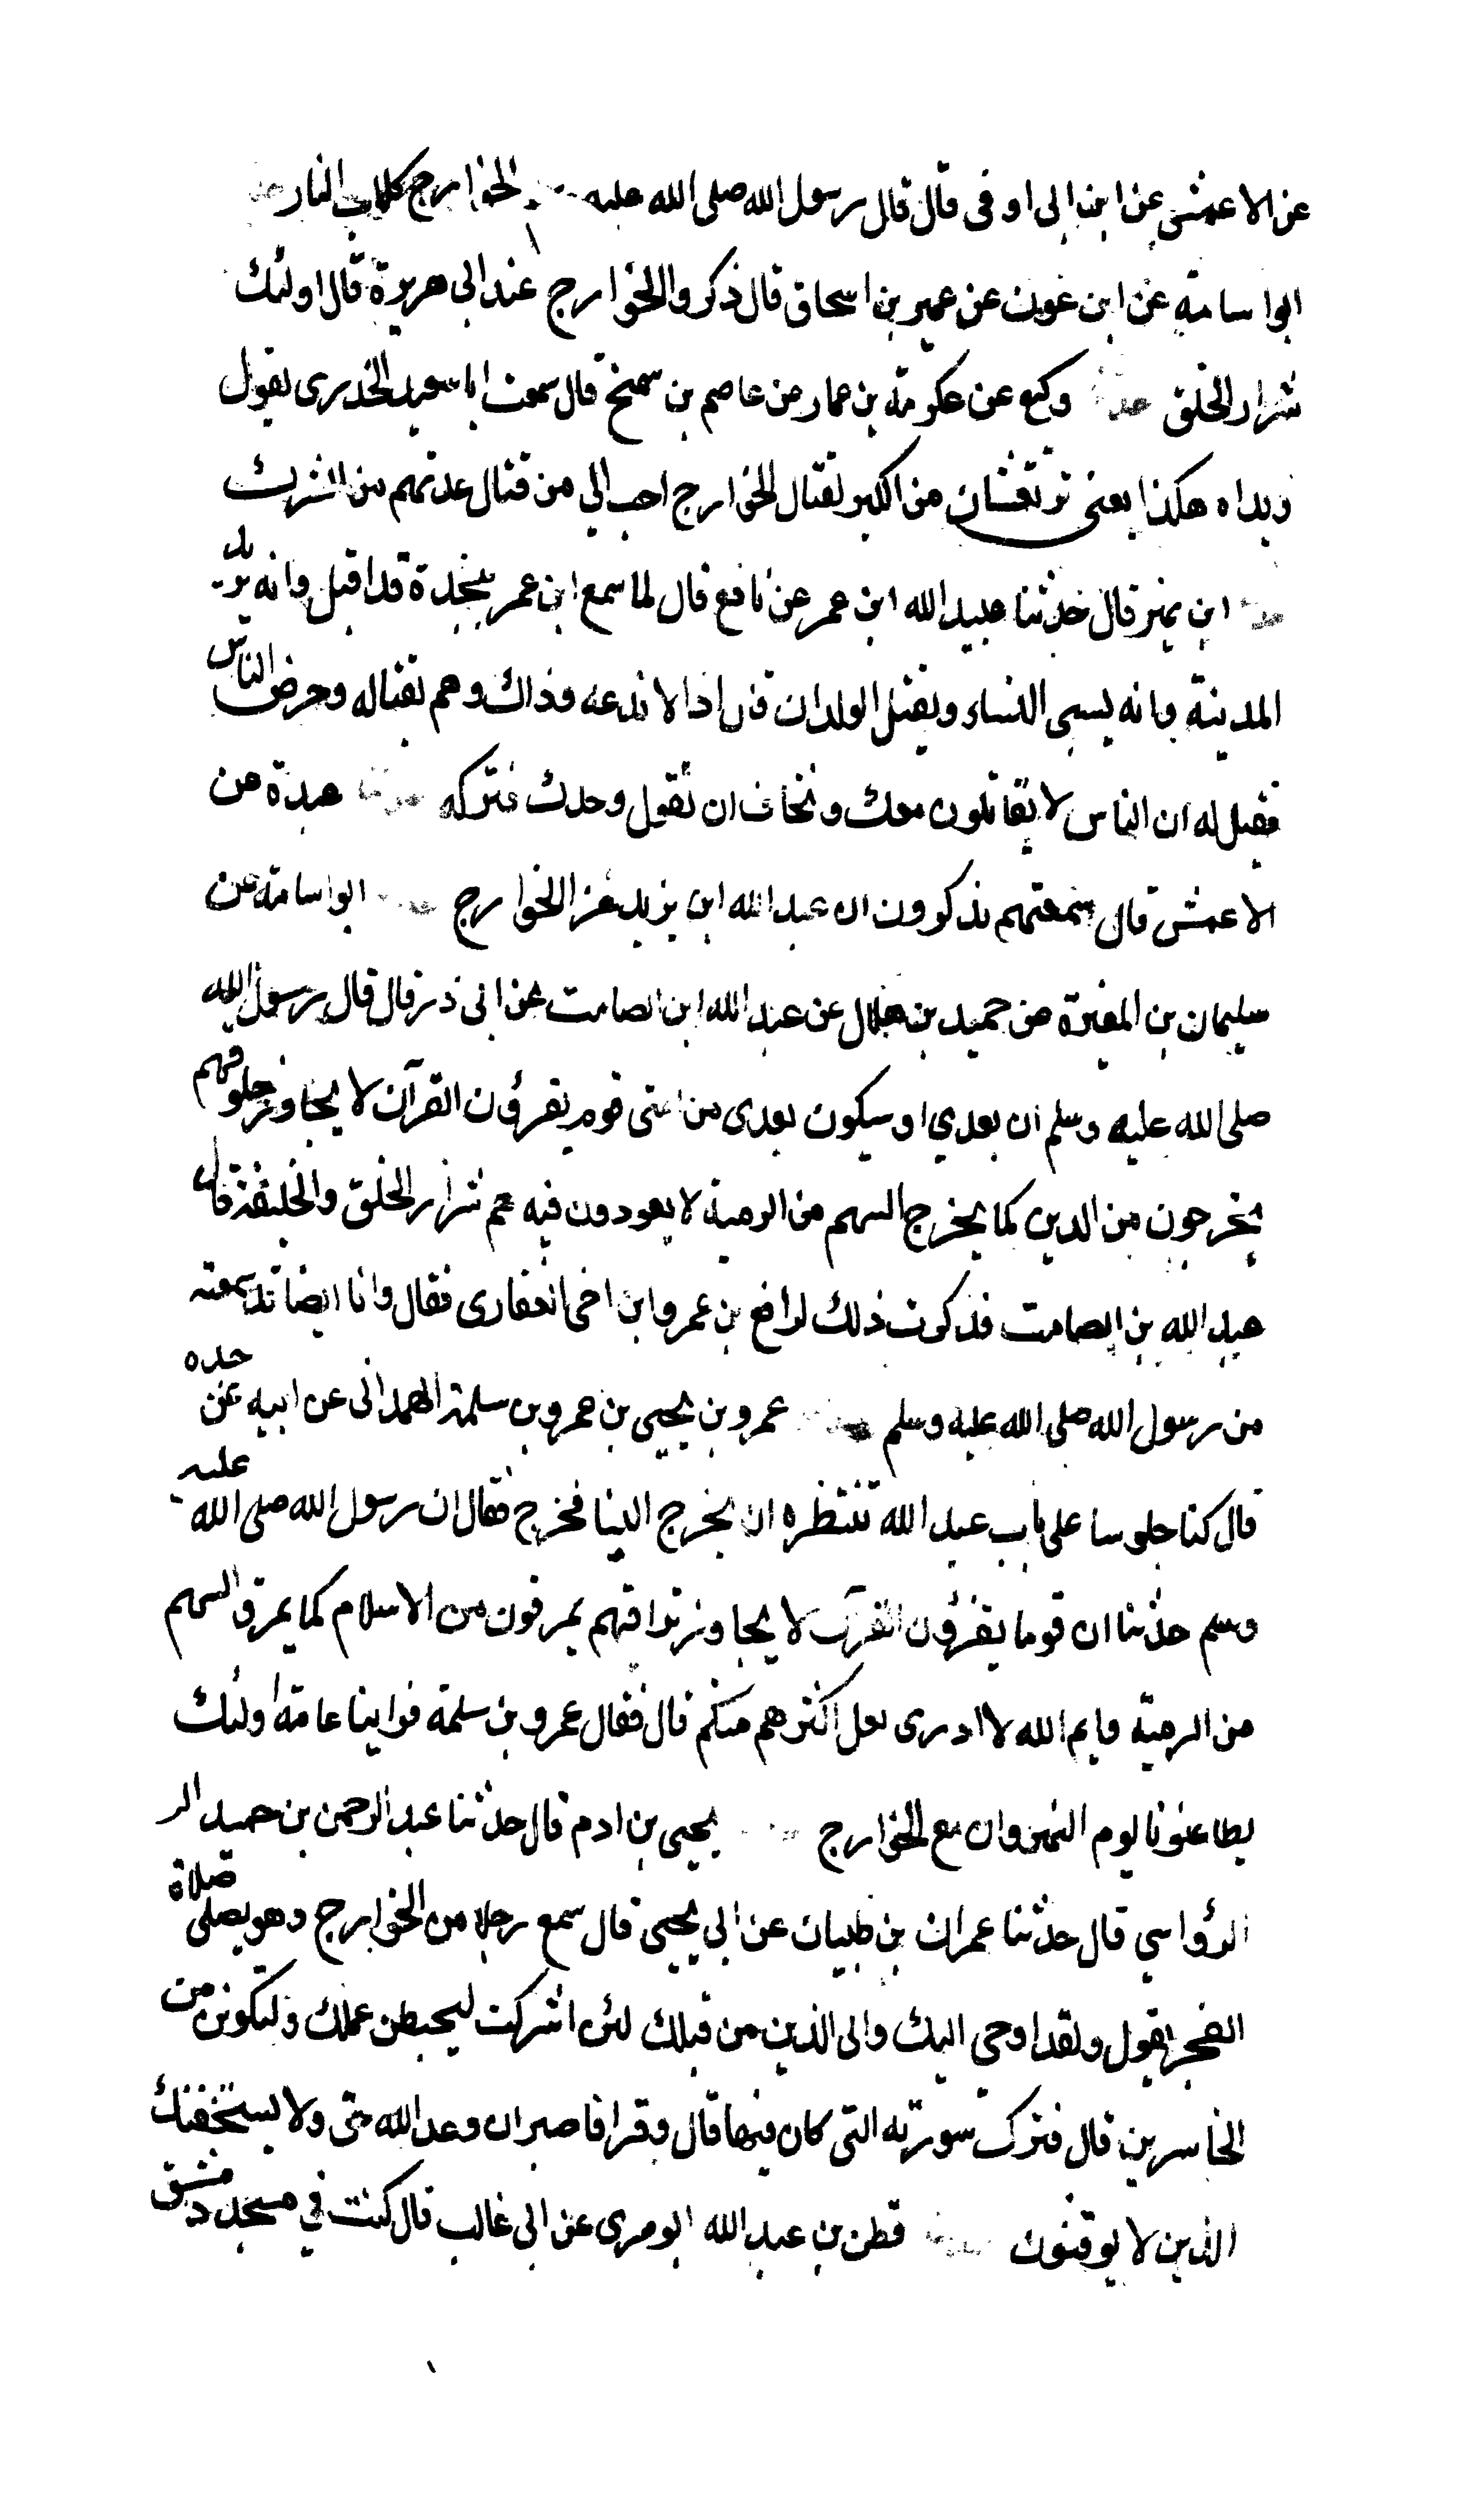 عن الاعمش عن ابن ابى اوفى قال قال رسول الله صلى الله عليه الخوارج كلاب النار
ابو اسامة عن ابن عون عن عمير بن اسحاق قال ذكروا الخوارج عند ابى هريرة قال اولئك
شرار الخلق حدثنا وكيع عن عكرمة بن عمار عن عاصم بن سمخ قال سمعت ابا سعيد الخدرى يقول
ويداه هكذا يعنى ترتعشان من الكبر لقتال الخوارج احب الي من قتال عدتهم من الشرك
حدثنا ابن نمير قال حدثنا عبيد الله ابن عمر عن نافع قال لما سمع ابن عمر بنجدة قد اقبل وانه يريد
المدينة وانه يسبى النساء ويقتل الولدان قال اذا لا ندعه وذاك وهم بقتاله وحرض الناس
فقيل له ان الناس لا يقاتلون معك ونخاف ان تقول وحدك فتركه حدثنا عبدة عن
الاعمش قال سمعتهم يذكرون ان عبد الله ابن يزيد غزا الخوارج ابو اسامة عن
سليمان بن المغيرة عن حميد بن هلال عن عبد الله ابن الصامت عن ابى ذر قال قال رسول الله
صلى الله عليه وسلم ان بعدي او سيكون بعدى من امتى قوم يقرؤن القرآن لا يجاوز حلوقهم
يخرجون من الدين كما يخرج السهم من الرمية لا يعودون فيه هم شرار الخلق والخليفة قال
عبد الله بن الصامت فذكرت ذلك لرافع بن عمرو ابن اخى الغفارى فقال وانا ايضا قد سمعته
من رسول الله صلى الله عليه وسلم حدثنا عمرو بن يحيى بن عمرو بن سلمة الهمدانى عن ابيه عن جده
قال كنا جلوسا على باب عبد الله ننتظره ان يخرج الينا فخرج فقال ان رسول الله صلى الله عليه
وسلم حدثنا ان قوما يقرؤن القرآن لا يجاوز تراقيهم يمرقون من الاسلام كما يمرق السهم
من الرمية وايم الله لا ادرى لعل اكثرهم منكم قال فقال عمرو بن سلمة فراينا عامة اولئك
يطاعنونا يوم النهروان مع الخوارج يحيى بن ادم قال حدثنا عبد الرحمن بن حميد الر
الرؤاسي قال حدثنا عمران بن ظبيان عن ابى يحيى قال سمع رجلا من الخوارج وهو يصلى صلاة
الفجر يقول ولقد اوحي اليك والى الذين من قبلك لئن اشركت ليحبطن عملك ولتكونن من
الخاسرين قال فترك سورته التى كان فيها قال وقرا فاصبر ان وعد الله حق ولا يستخفنك
الذين لا يوقنون حدثنا قطن بن عبد الله ابو مرى عن ابى غالب قال كنت في مسجد دمشق